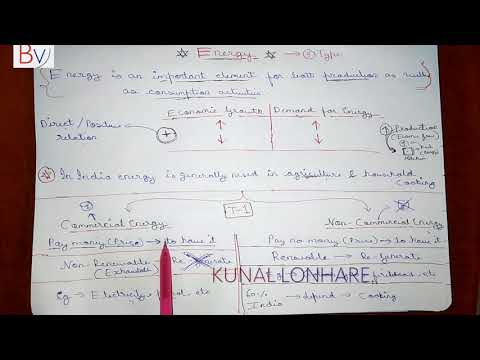 BV
☆ Energy ☆ → ② Type
Energy is an important element for both production as well
as consumption activities
Economic Growth | Demand for Energy
Direct/Positive relation
+
↑ ↑
↓ ↓
Production
In India energy is generally used in agriculture & household
Cooking
T-1
Commercial Energy
Non-Commercial Energy
Pay money (Price) → to have it
Pay no money (Price) → to have it
Non-Renewable → Re-generate
(Exhaustible)
Renewable → Re-generate
KUNAL LONHARE
Eg → Electricity, etc
60% India → depend → Cooking